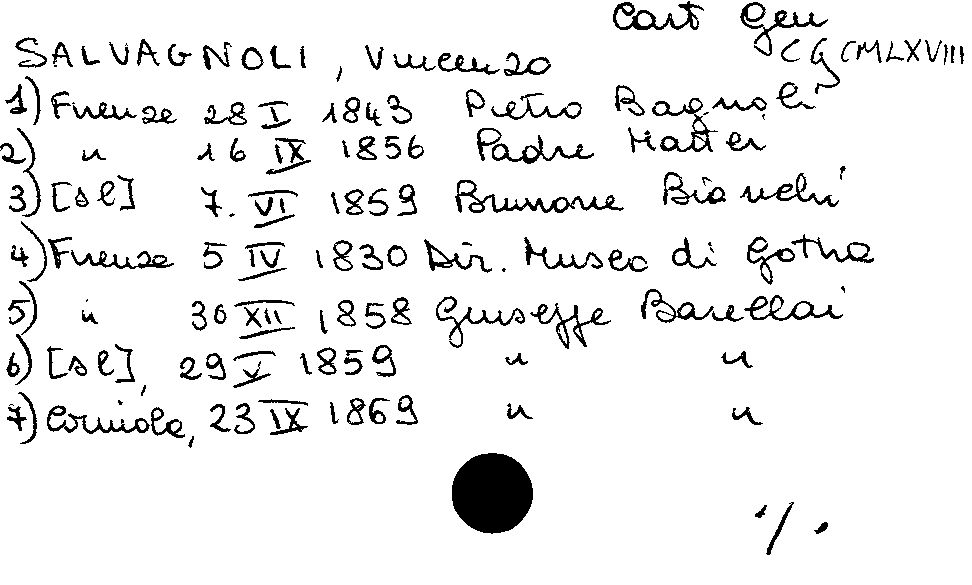 Cart Gen
SALVAGNOLI, Vincenzo CG CMLXVIII
1) Firenze 28 I 1843 Pietro Bagnoli
2) " 16 IX 1856 Padre Mattei
3) [sl] 7. VI 1859 Brunone Bianchi
4) Firenze 5 IV 1830 Dir. Museo di Gotha
5) " 30 XII 1858 Giuseppe Barellai
6) [sl], 29 V 1859 " "
7) Corniola, 23 IX 1869 " "
./.